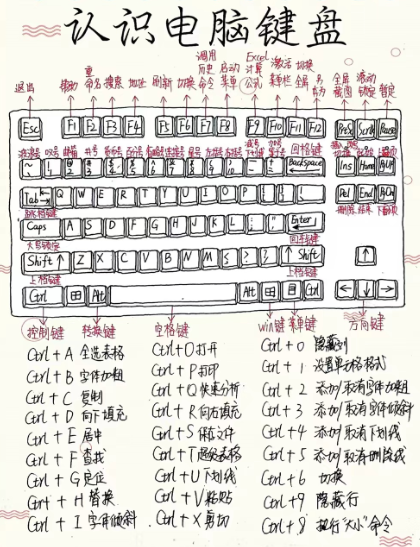 认识电脑键盘
调用 Excel
重 历史 启动 计算 激活 切换 另 全屏 滚动
退出 帮助 命名 搜索 地址 刷新 切换 命令 菜单 公式 菜单栏 全屏 存为 截图 锁定 暂停
Esc F1 F2 F3 F4 F5 F6 F7 F8 F9 F10 F11 F12 PrtSc Scrlk Pause
回格键
BackSpace Ins Home PgUp
Tab Q W E R T Y U I O P Del End PgDn
跳档键 删除 结束 下翻页
Caps A S D F G H J K L Enter
大写锁定 回车键
Shift Z X C V B N M Shift ↑
上档键 上档键
Ctrl Alt Alt Ctrl ← ↓ →
控制键 转换键 空格键 win键 菜单键 方向键
Ctrl + A 全选表格 Ctrl + O 打开 Ctrl + 0 隐藏列
Ctrl + B 字体加粗 Ctrl + P 打印 Ctrl + 1 设置单元格格式
Ctrl + C 复制 Ctrl + Q 快速分析 Ctrl + 2 添加/取消字体加粗
Ctrl + D 向下填充 Ctrl + R 向右填充 Ctrl + 3 添加/取消字体倾斜
Ctrl + E 居中 Ctrl + S 保存文件 Ctrl + 4 添加/取消下划线
Ctrl + F 查找 Ctrl + T 超级表格 Ctrl + 5 添加/取消删除线
Ctrl + G 定位 Ctrl + U 下划线 Ctrl + 6 切换
Ctrl + H 替换 Ctrl + V 粘贴 Ctrl + 9 隐藏行
Ctrl + I 字体倾斜 Ctrl + X 剪切 Ctrl + 8 执行"大小"命令